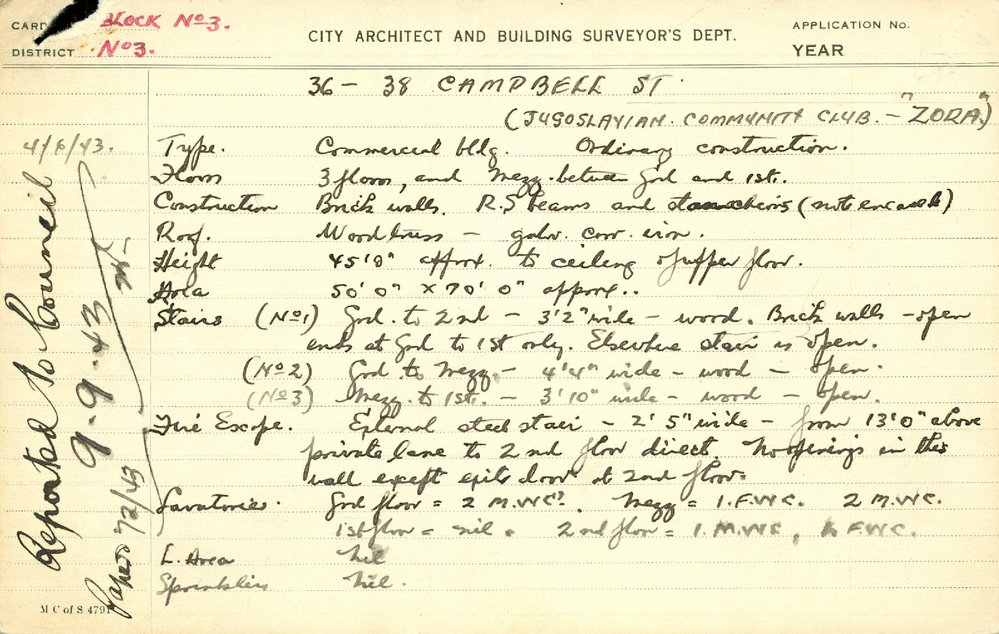 CARD BLOCK No 3.
DISTRICT No 3.
CITY ARCHITECT AND BUILDING SURVEYOR'S DEPT.
APPLICATION No.
YEAR
36 - 38 CAMPBELL ST.
(JUGOSLAVIAN. COMMUNITY CLUB. - "ZORA")
4/6/43.
Type. Commercial bldg. Ordinary construction.
Floors 3 floors, and Mezz. between Grd and 1st.
Construction Brick walls. R.S beams and stancheons (not encased)
Roof. Wood truss - galv. corr. iron.
Height 45'0" approx. to ceiling of upper floor.
Area 50'0" x 70'0" approx..
Stairs (No 1) Grd. to 2nd - 3'2" wide - wood. Brick walls - open
ends at Grd to 1st only. Elsewhere stair is open.
(No 2) Grd. to Mezz - 4'4" wide - wood - open.
(No 3) Mezz. to 1st. - 3'10" wide - wood - open.
Fire Escope. External steel stair - 2'5" wide - from 13'0" above
private lane to 2nd floor direct. No openings in this
wall except exits door at 2nd floor.
Lavatories. Grd floor = 2 M.WCs. Mezz = 1.F.WC. 2 M.WC.
1st floor = nil. 2nd floor = 1.M.WC, F.WC.
L. Area Nil
Sprinklers Nil.
Reported to Council
9.9.43
Papers 72/43
M C of S 4791